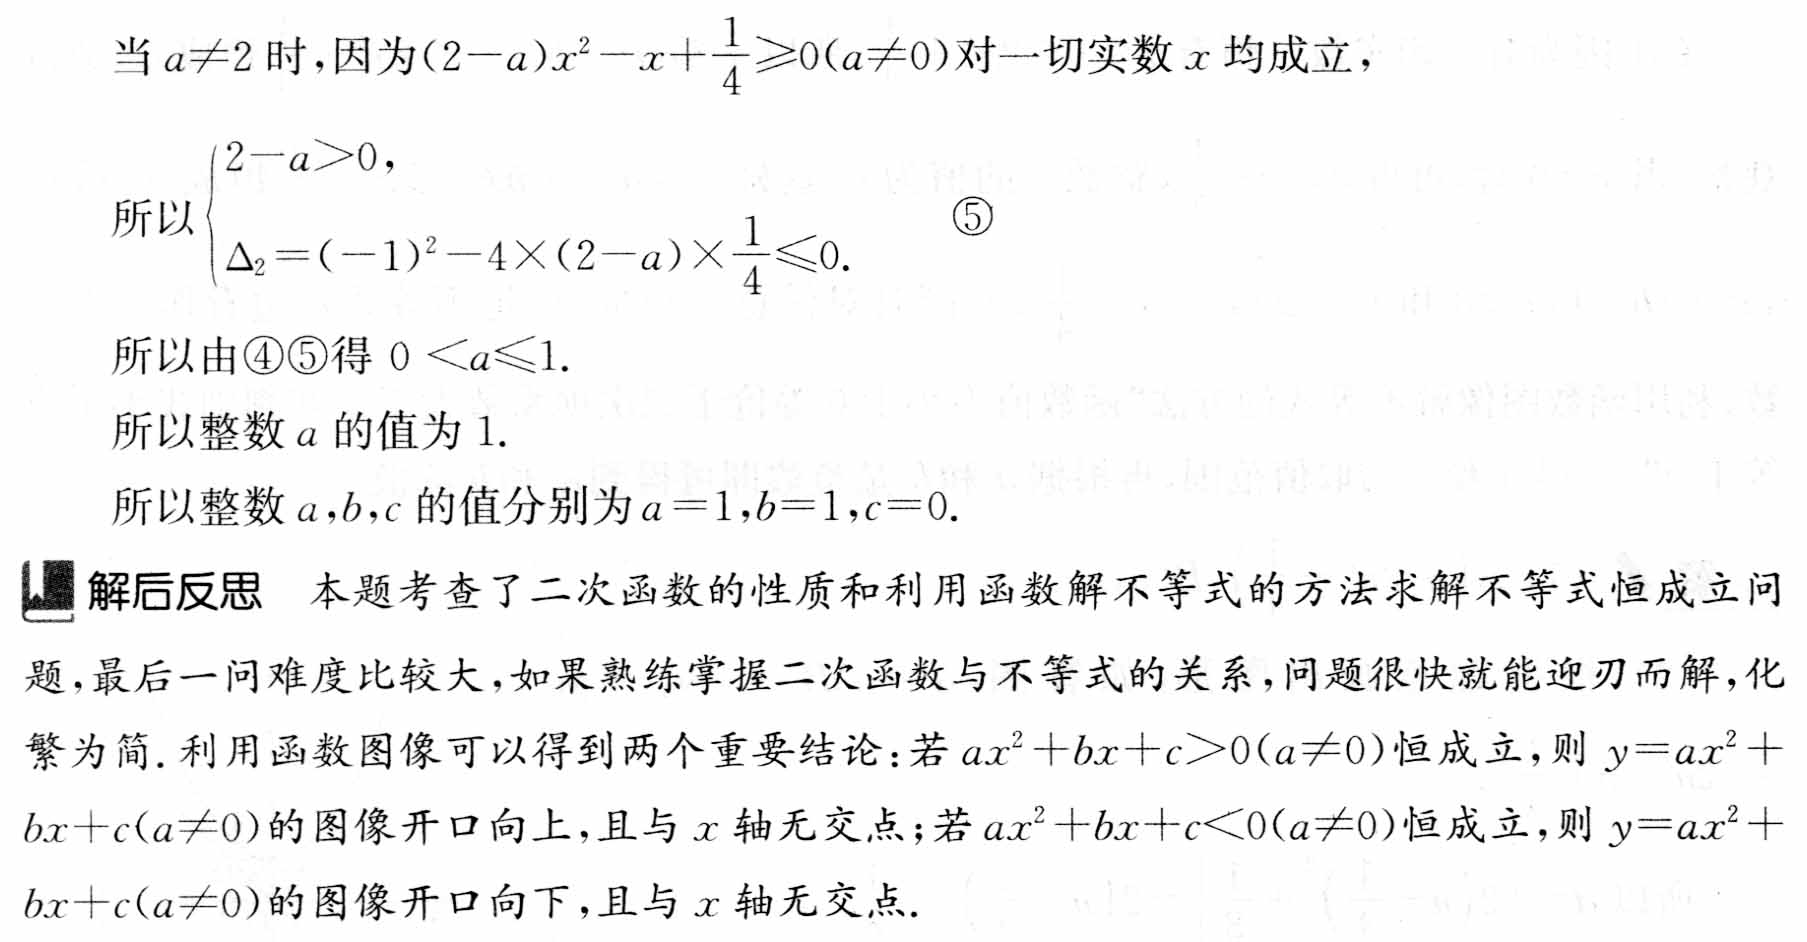 当 a≠2 时,因为(2−a)x²−x+1/4⩾0(a≠0)对一切实数 x 均成立,
所以{2−a>0, Δ₂=(−1)²−4×(2−a)×1/4⩽0. ⑤
所以由④⑤得 0<a⩽1.
所以整数 a 的值为 1.
所以整数 a,b,c 的值分别为 a=1,b=1,c=0.
解后反思 本题考查了二次函数的性质和利用函数解不等式的方法求解不等式恒成立问
题,最后一问难度比较大,如果熟练掌握二次函数与不等式的关系,问题很快就能迎刃而解,化
繁为简.利用函数图像可以得到两个重要结论:若 ax²+bx+c>0(a≠0)恒成立,则 y=ax²+
bx+c(a≠0)的图像开口向上,且与 x 轴无交点;若 ax²+bx+c<0(a≠0)恒成立,则 y=ax²+
bx+c(a≠0)的图像开口向下,且与 x 轴无交点.